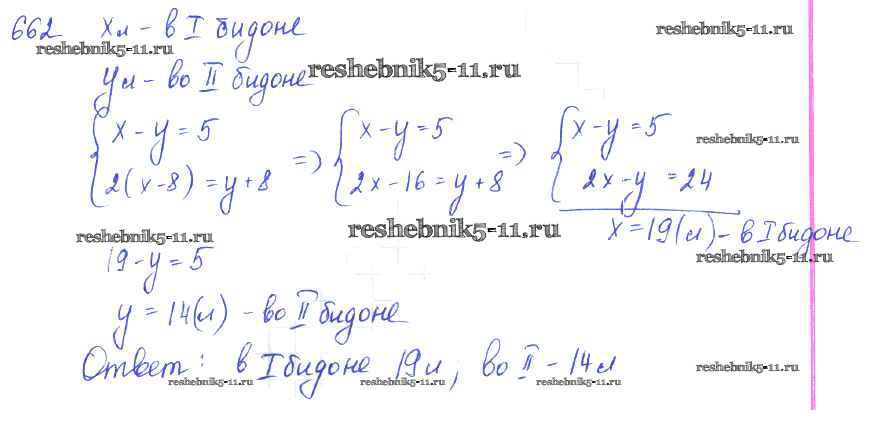 662 Xл - в I бидоне
reshebnik5-11.ru reshebnik5-11.ru
Ул - во II бидоне reshebnik5-11.ru
{ x - y = 5 => { x - y = 5 => { x - y = 5 reshebnik5-11.ru
2(x-8) = y+8 2x-16 = y+8 2x-y = 24
reshebnik5-11.ru reshebnik5-11.ru x = 19(л) - в I бидоне
19 - y = 5 reshebnik5-11.ru
y = 14(л) - во II бидоне
Ответ: в I бидоне 19л, во II - 14л reshebnik5-11.ru
reshebnik5-11.ru reshebnik5-11.ru reshebnik5-11.ru